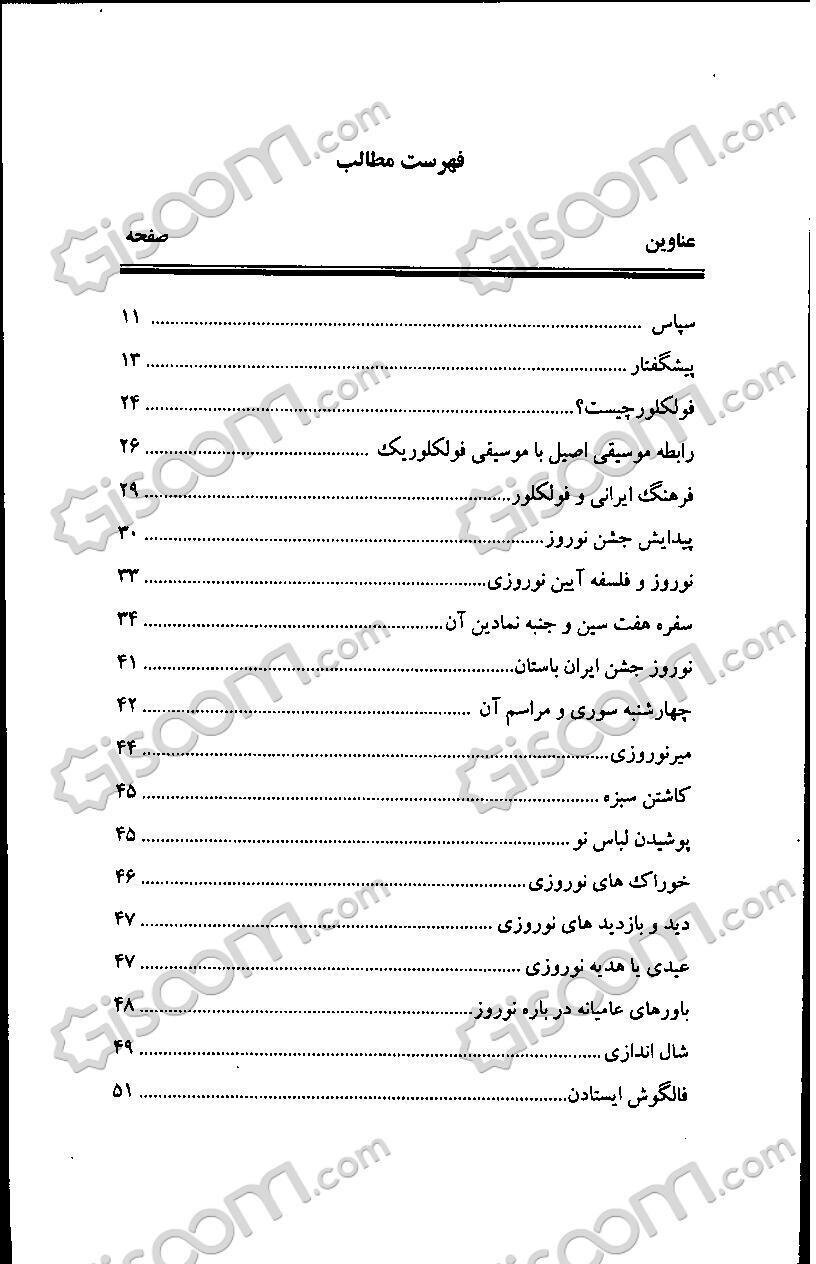 فهرست مطالب
عناوین صفحه
سپاس ........ ۱۱
پیشگفتار ........ ۱۳
فولکلورچیست؟ ........ ۲۴
رابطه موسیقی اصیل با موسیقی فولکلوریک ........ ۲۶
فرهنگ ایرانی و فولکلور ........ ۲۹
پیدایش جشن نوروز ........ ۳۰
نوروز و فلسفه آیین نوروزی ........ ۳۳
سفره هفت سین و جنبه نمادین آن ........ ۳۴
نوروز جشن ایران باستان ........ ۴۱
چهارشنبه سوری و مراسم آن ........ ۴۲
میرنوروزی ........ ۴۴
کاشتن سبزه ........ ۴۵
پوشیدن لباس نو ........ ۴۵
خوراک های نوروزی ........ ۴۶
دید و بازدید های نوروزی ........ ۴۷
عیدی یا هدیه نوروزی ........ ۴۷
باورهای عامیانه در باره نوروز ........ ۴۸
شال اندازی ........ ۴۹
فالگوش ایستادن ........ ۵۱
Gisoom.com
Gisoom.com
Gisoom.com
Gisoom.com
Gisoom.com
Gisoom.com
Gisoom.com
Gisoom.com
Gisoom.com
Gisoom.com